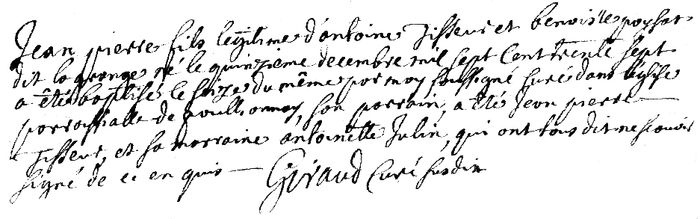 Jean pierre fils legitime d'antoine Tisseur et benoiste poysat
dit la grange né le quinzieme decembre mil sept Cent trente sept
a été baptisé le seize du même par moy soussigné Curé dans l'eglise
parroissialle de poullionnay, son parrain a été Jean pierre
Tisseur, et sa marraine antoinette Julin, qui ont tous dit ne scavoir
signé de ce enquis Giraud Curé susdit